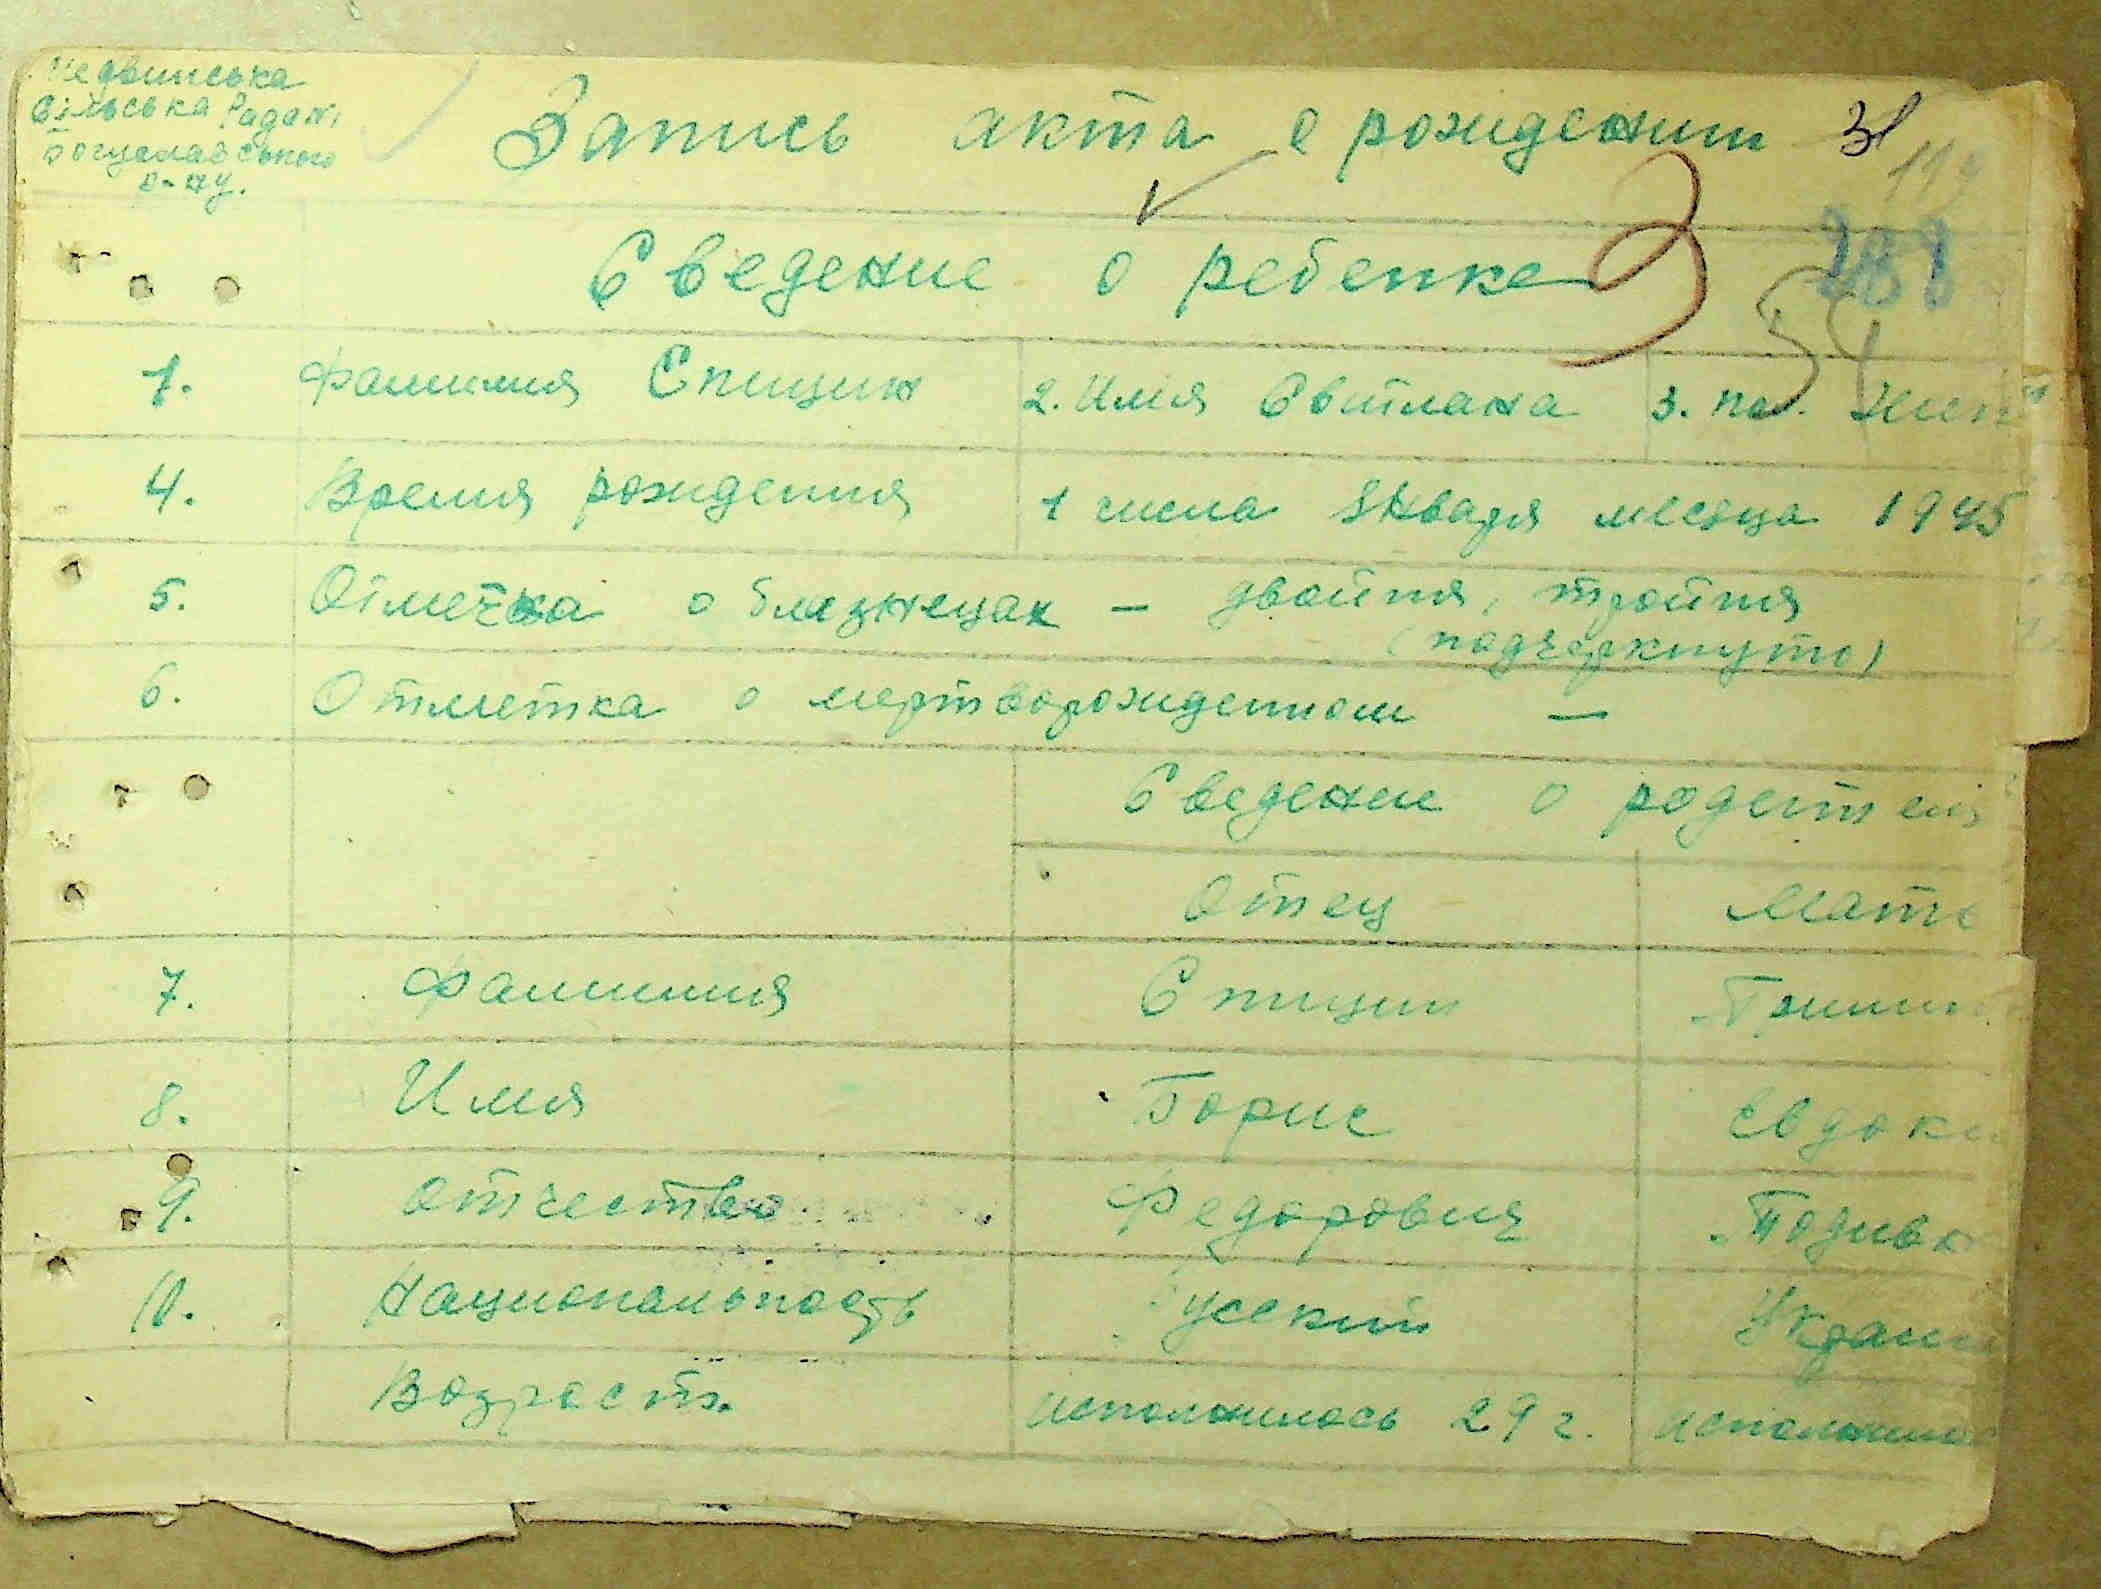 Медвинська
Сільська Рада №1
Богуславського
р-ну.
Запись акта о рождении 31
119
288
Сведение о ребенке
1. Фамилия Спицин 2. Имя Свитлана 3. пол.
4. Время рождения 1 числа Января месяца 1945
5. Отмечка о близнецах — двойня, тройня
(подчеркнуто)
6. Отметка о мертворожденном —
Сведение о родител
Отец Мать
7. Фамилия Спицин
8. Имя Борис Евдоки
9. Отчество Федорович
10. Национальность Русский Украин
Возраст. исполнилось 29 г. исполнилос